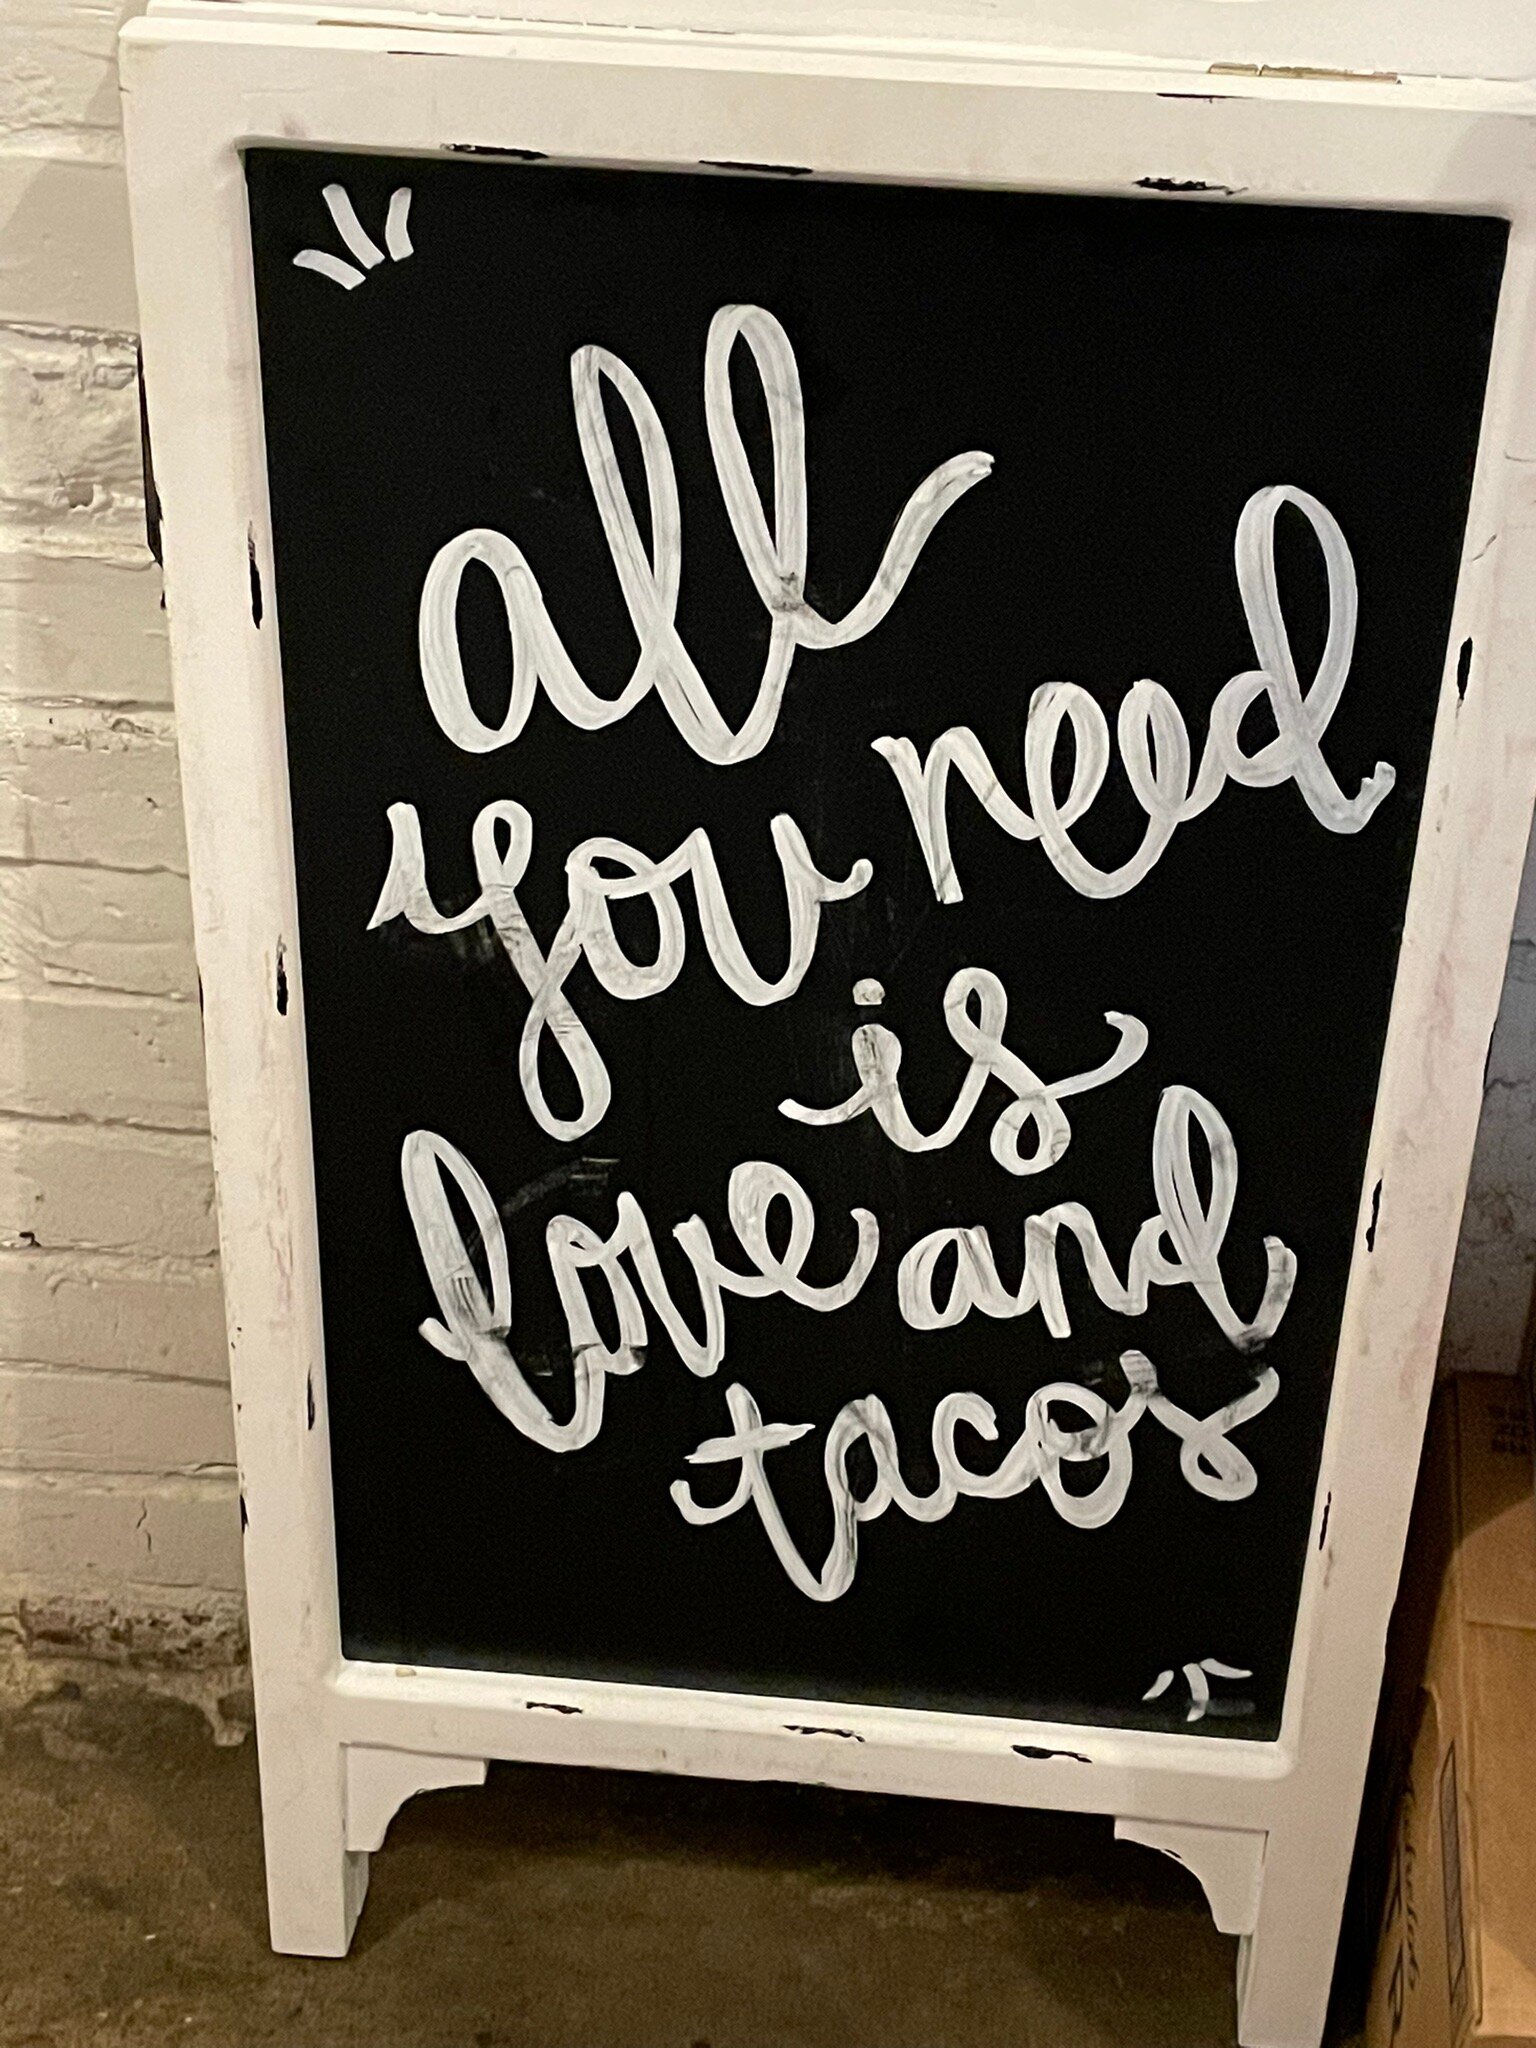 all
you need
is
love and
tacos